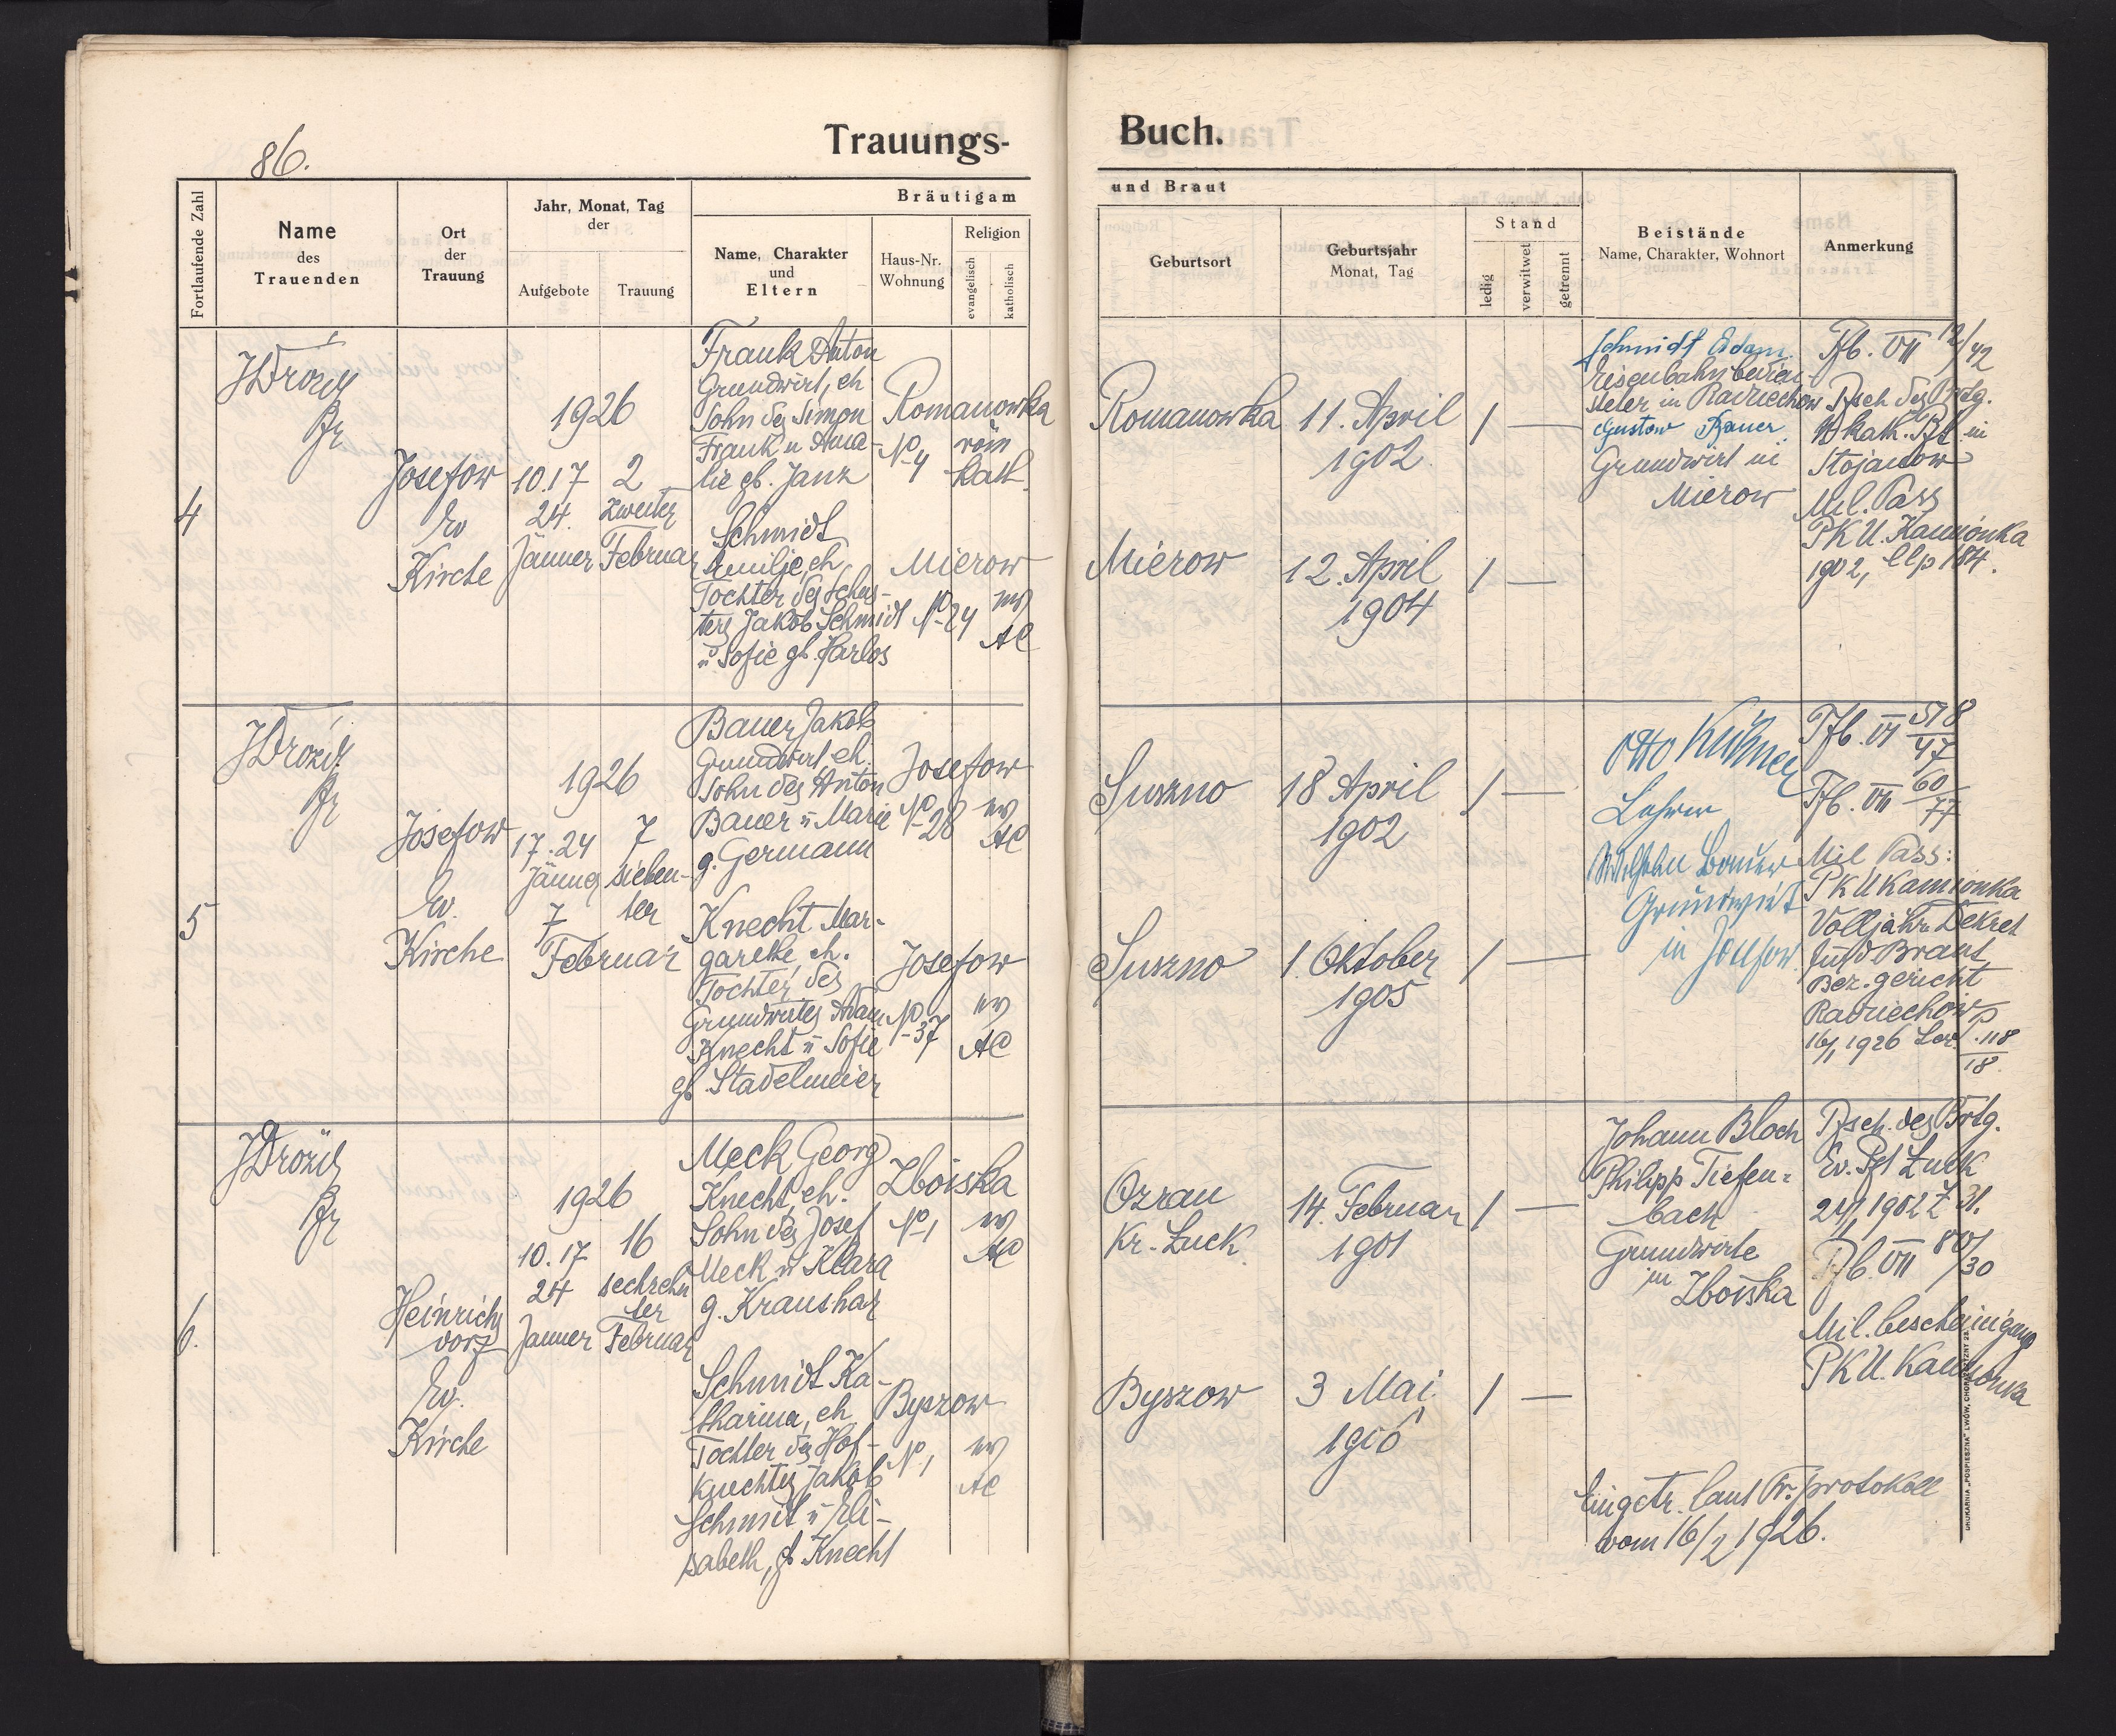 86.
Trauungs-
Buch.
Fortlaufende Zahl
Name
des
Trauenden
Ort
der
Trauung
Jahr, Monat, Tag
der
Aufgebote
Trauung
Bräutigam
Name, Charakter
und
Eltern
Haus-Nr.
Wohnung
Religion
evangelisch
katholisch
und Braut
Geburtsort
Geburtsjahr
Monat, Tag
Stand
ledig
verwitwet
getrennt
Beistände
Name, Charakter, Wohnort
Anmerkung
4
JDrozd
Pfr
Josefow
Ev
Kirche
1926
10.17
24.
Jänner
2
zweiter
Februar
Frank Anton
Grundwirt, eh
Sohn des Simon
Frank u Ama-
lie gb. Janz
Romanowka
No 4
röm
kath.
Schmidt
Emilje, eh
Tochter des Schus-
ters Jakob Schmidt
u Sofie gb. Harlos
Mierow
No 24
ev
AC
Romanowka
11. April
1902
1 —
Mierow
12. April
1904
1 —
Schmidt Adam
Eisenbahnbedien-
steter in Radziechow
Gustow Bauer
Grundwirt in
Mierow
Pfb. VII 12/42
Tfsch des Brtg.
R kath. Pft in
Stojanow
Mil. Pass
PKU. Kamionka
1902, llp 184.
5
JDrozd
Pfr
Josefow
Ev.
Kirche
1926
17.24
Jänner
7
Februar
7
sieben-
ter
Bauer Jakob
Grundwirt, eh.
Sohn des Anton
Bauer u Marie
g. Germann
Josefow
No 28
ev
AC
Knecht Mar-
garethe eh.
Tochter des
Grundwirtes Adam
Knecht u Sofie
gb. Stadelmeier
Josefow
No 37
ev
AC
Suszno
18 April
1902
1 —
Suszno
1. Oktober
1905
1 —
Otto Küßner
Lehrer
Wilhelm Bauer
Grundwirt
in Josefow
Pfb. VI 518/47
Pfb. VII 60/77
Mil Pass:
PKU Kamionka
Volljähr. Dekret
für d Braut
Bez. gericht
Radziechow
16/1 1926 118/18
6.
JDrozd
Pfr
Heinrichs
dorf
Ev.
Kirche
1926
10.17
24
Jänner
16
sechzehn
ter
Februar
Meck Georg
Knecht, eh.
Sohn des Josef
Meck u Klara
g. Kraushar
Zboiska
No 1
ev
AC
Schmidt Ka-
tharina, eh
Tochter des Hof-
knechtes Jakob
Schmidt u Eli-
sabeth, gb Knecht
Byszow
No 1
ev
AC
Ozrau
Kr. Luck
14. Februar
1901
1 —
Byszow
3 Mai
1906
1 —
Johann Bloch
Philipp Tiefen-
bach
Grundwirte
in Zboiska
Tfsch. des Brtg.
Ev. Pft Luck
24/1 1902 Z 31.
Pfb. VII 80/30
Mil. bescheinigung
PKU. Kamionka
Eingetr. laut Tr. protokoll
vom 16/2 1926.
DRUKARNIA „POSPIESZNA" LWÓW, CHORĄŻCZYZNY 22